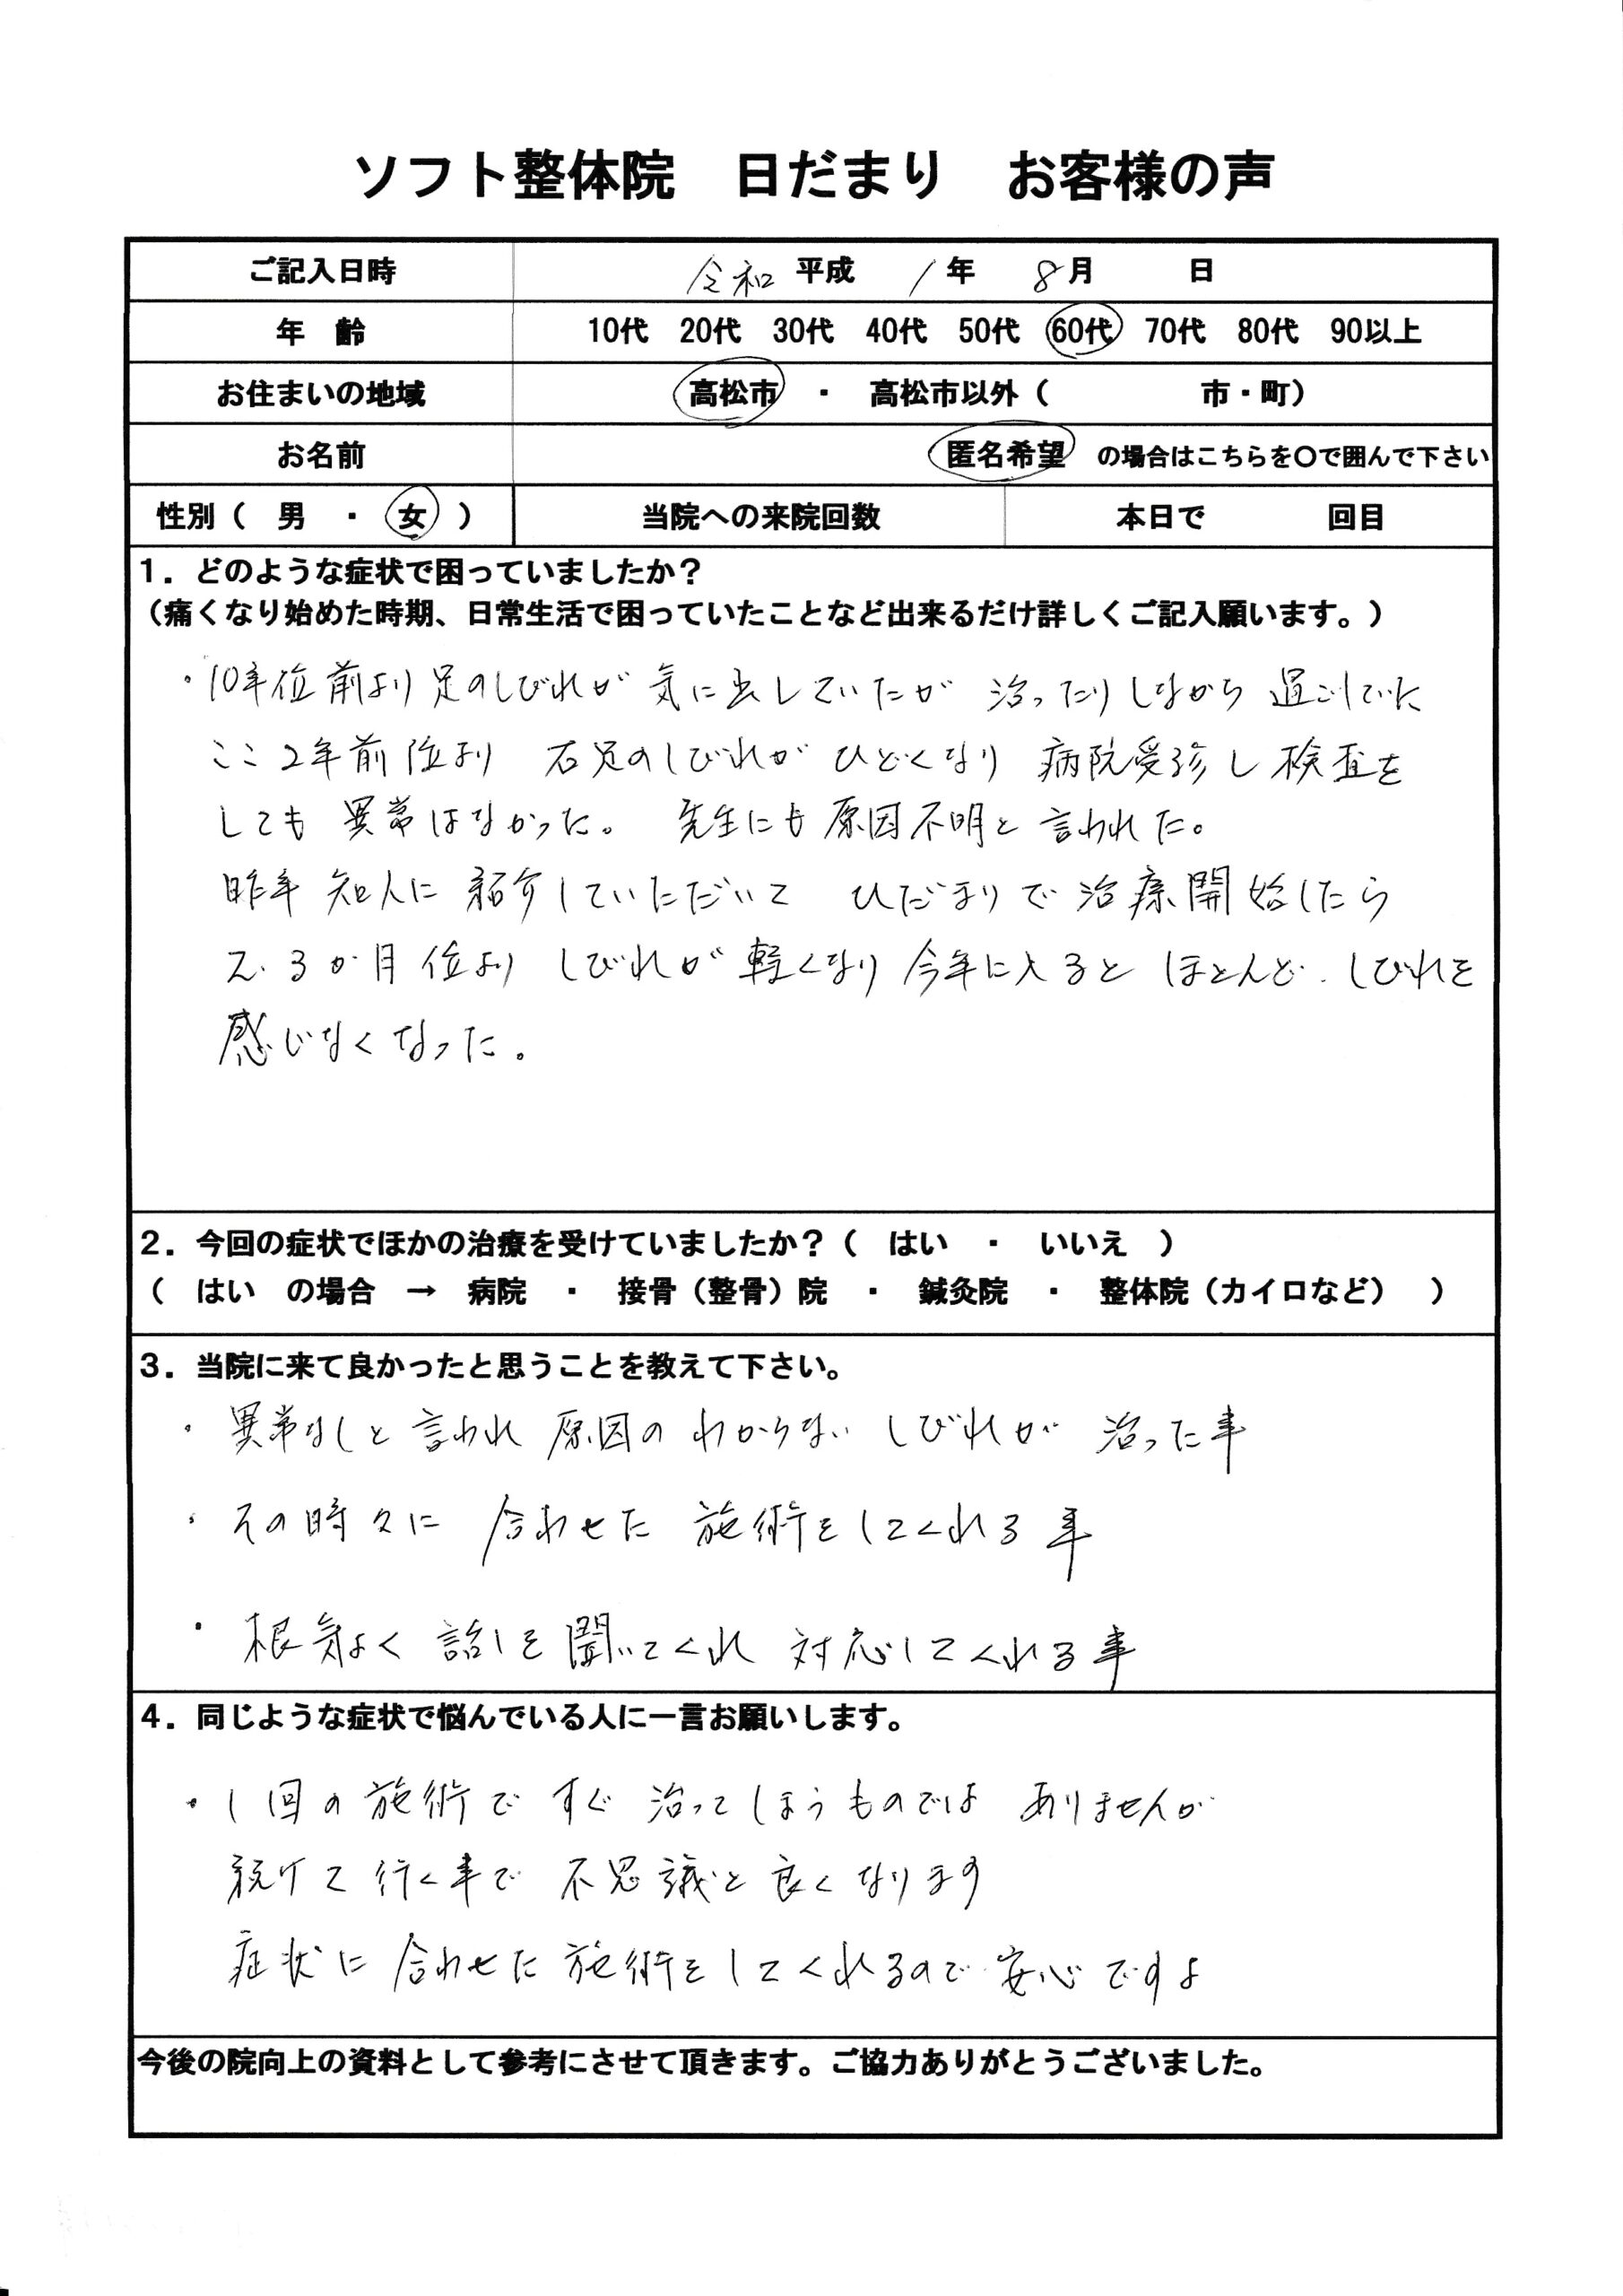 ソフト整体院　日だまり　お客様の声
ご記入日時　令和 平成 1年 8月 日
年 齢　10代 20代 30代 40代 50代 60代 70代 80代 90以上
お住まいの地域　高松市 ・ 高松市以外（ 市・町）
お名前　匿名希望 の場合はこちらを〇で囲んで下さい
性別（ 男 ・ 女 ）　当院への来院回数　本日で 回目
1．どのような症状で困っていましたか？
（痛くなり始めた時期、日常生活で困っていたことなど出来るだけ詳しくご記入願います。）
・10年位前より足のしびれが 気に出していたが 治ったりしながら 過ごしていた
ここ2年前位より 右足のしびれが ひどくなり 病院受診し検査を
しても 異常はなかった。 先生にも原因不明と言われた。
昨年 知人に紹介していただいて ひだまりで治療開始したら
2、3か月位より しびれが軽くなり今年に入ると ほとんど しびれを
感じなくなった。
2．今回の症状でほかの治療を受けていましたか？（ はい ・ いいえ ）
（ はい の場合 → 病院 ・ 接骨（整骨）院 ・ 鍼灸院 ・ 整体院（カイロなど） ）
3．当院に来て良かったと思うことを教えて下さい。
・異常なしと言われ 原因のわからない しびれが 治った事
・その時々に 合わせた 施術をしてくれる事
・根気よく 話しを聞いてくれ 対応してくれる事
4．同じような症状で悩んでいる人に一言お願いします。
・1回の施術で すぐ 治ってしまうものでは ありませんが
続けて行く事で 不思議と良くなります
症状に合わせた施術をしてくれるので安心ですよ
今後の院向上の資料として参考にさせて頂きます。ご協力ありがとうございました。